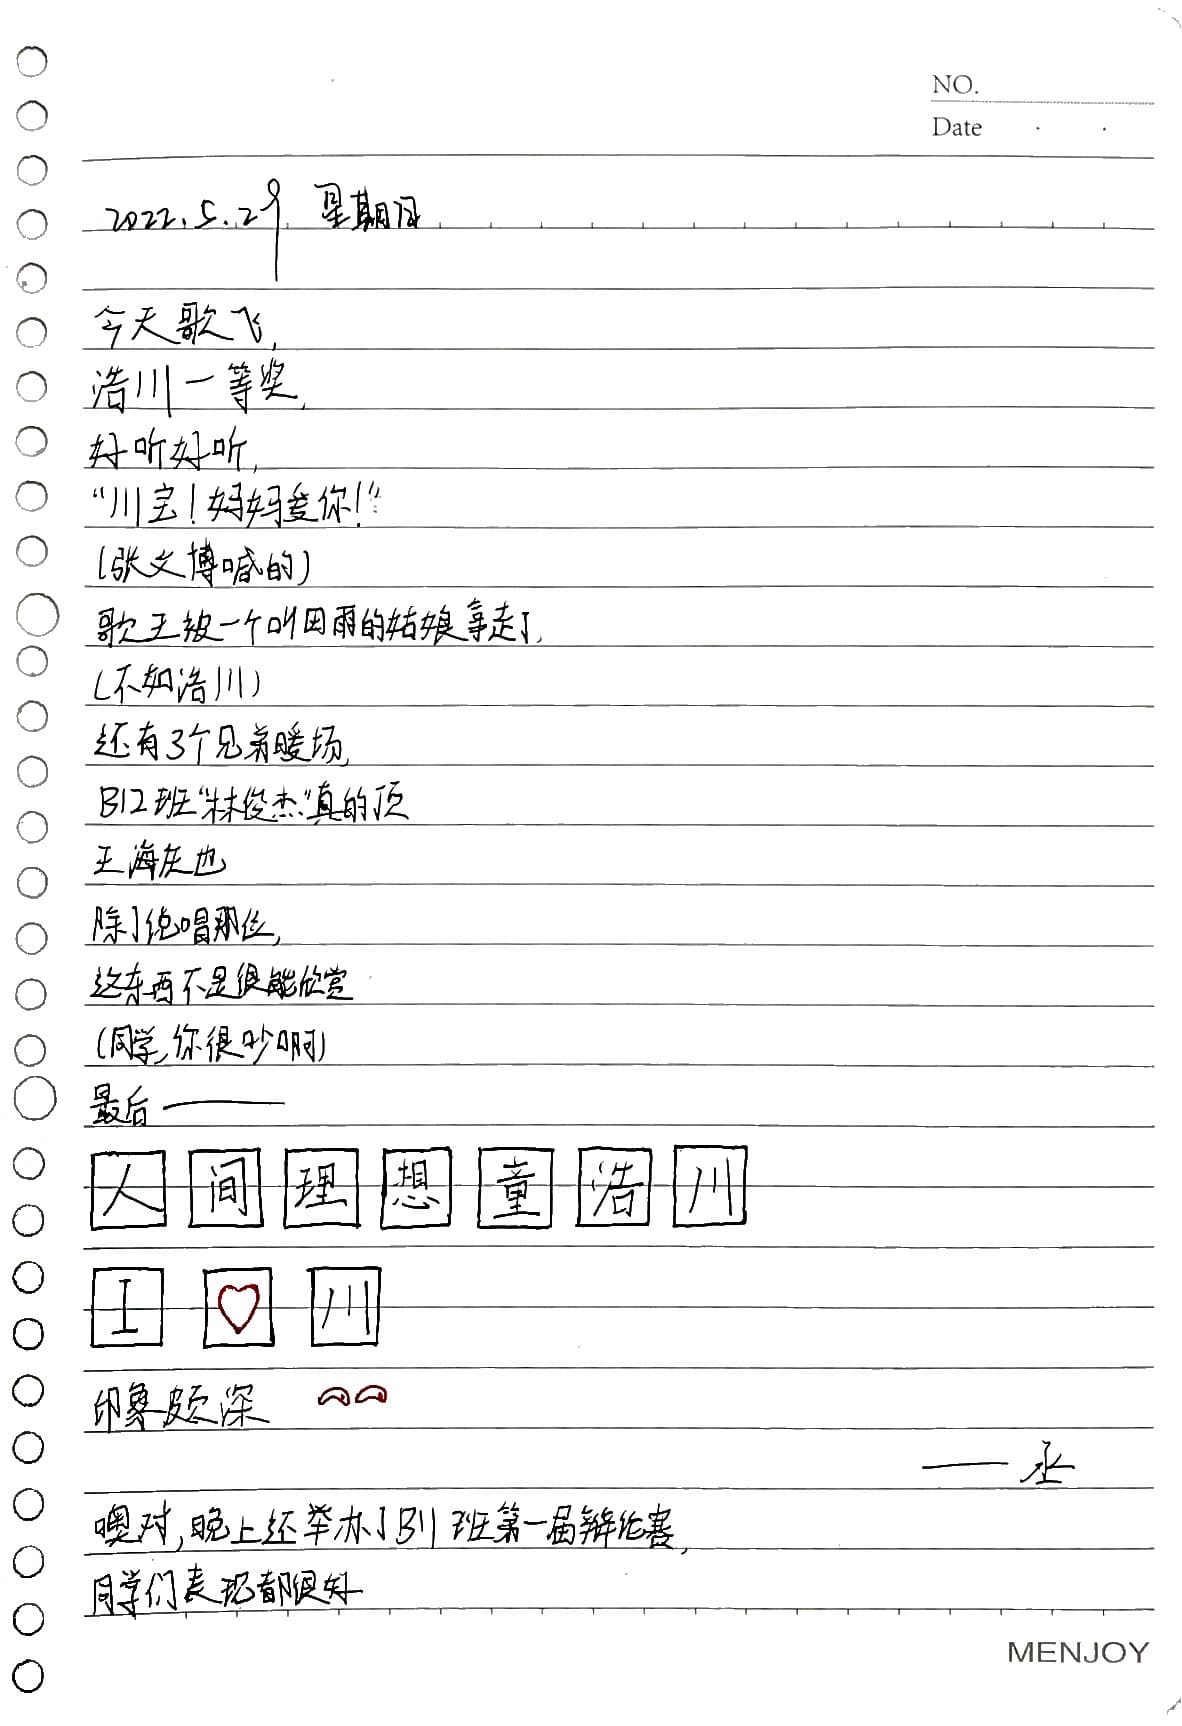 NO.
Date . .
2022.5.29 星期日
今天歌飞,
浩川一等奖,
好听好听,
“川宝!妈妈爱你!”
(张文博喊的)
歌王被一个叫田雨的姑娘拿走了,
(不如浩川)
还有3个兄弟暖场,
B12班“林俊杰”真的顶
王海灰也
除了绝唱那位,
这东西不是很能欣赏
(同学,你很吵啊)
最后——
人间理想童浩川
I ♡ 川
印象颇深
——丞
噢对,晚上还举办了B11班第一届辩论赛,
同学们表现都很好
MENJOY